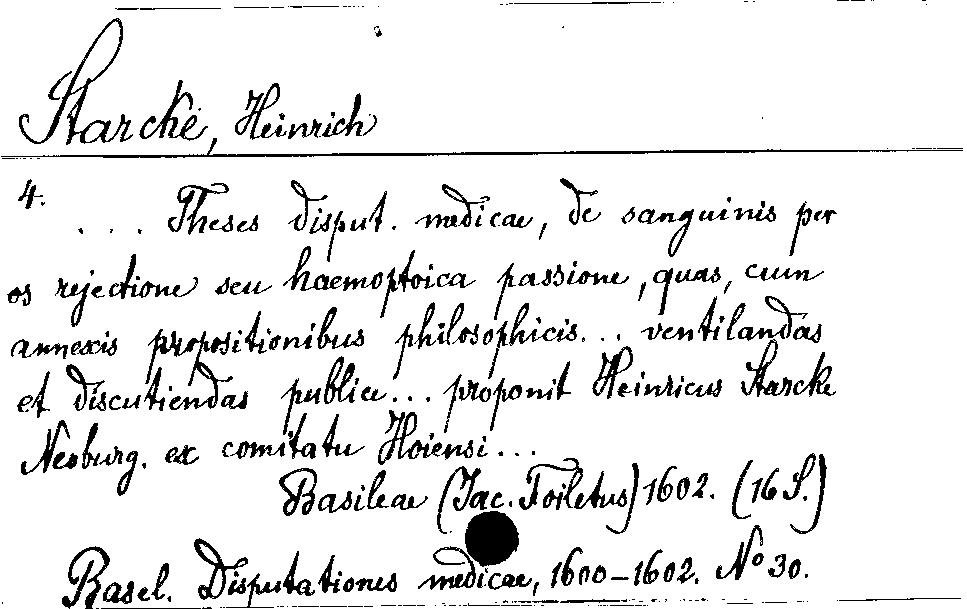 Starcke, Heinrich
4.
... Theses disput. medicae, de sanguinis per
os rejectione seu haemoptoica passione, quas, cum
annexis propositionibus philosophicis... ventilandas
et discutiendas publice... proponit Heinricus Starcke
Neoburg. ex comitatu Hoiensi...
Basileae (Jac. Foiletus) 1602. (16 S.)
Basel. Disputationes medicae, 1600-1602. No 30.